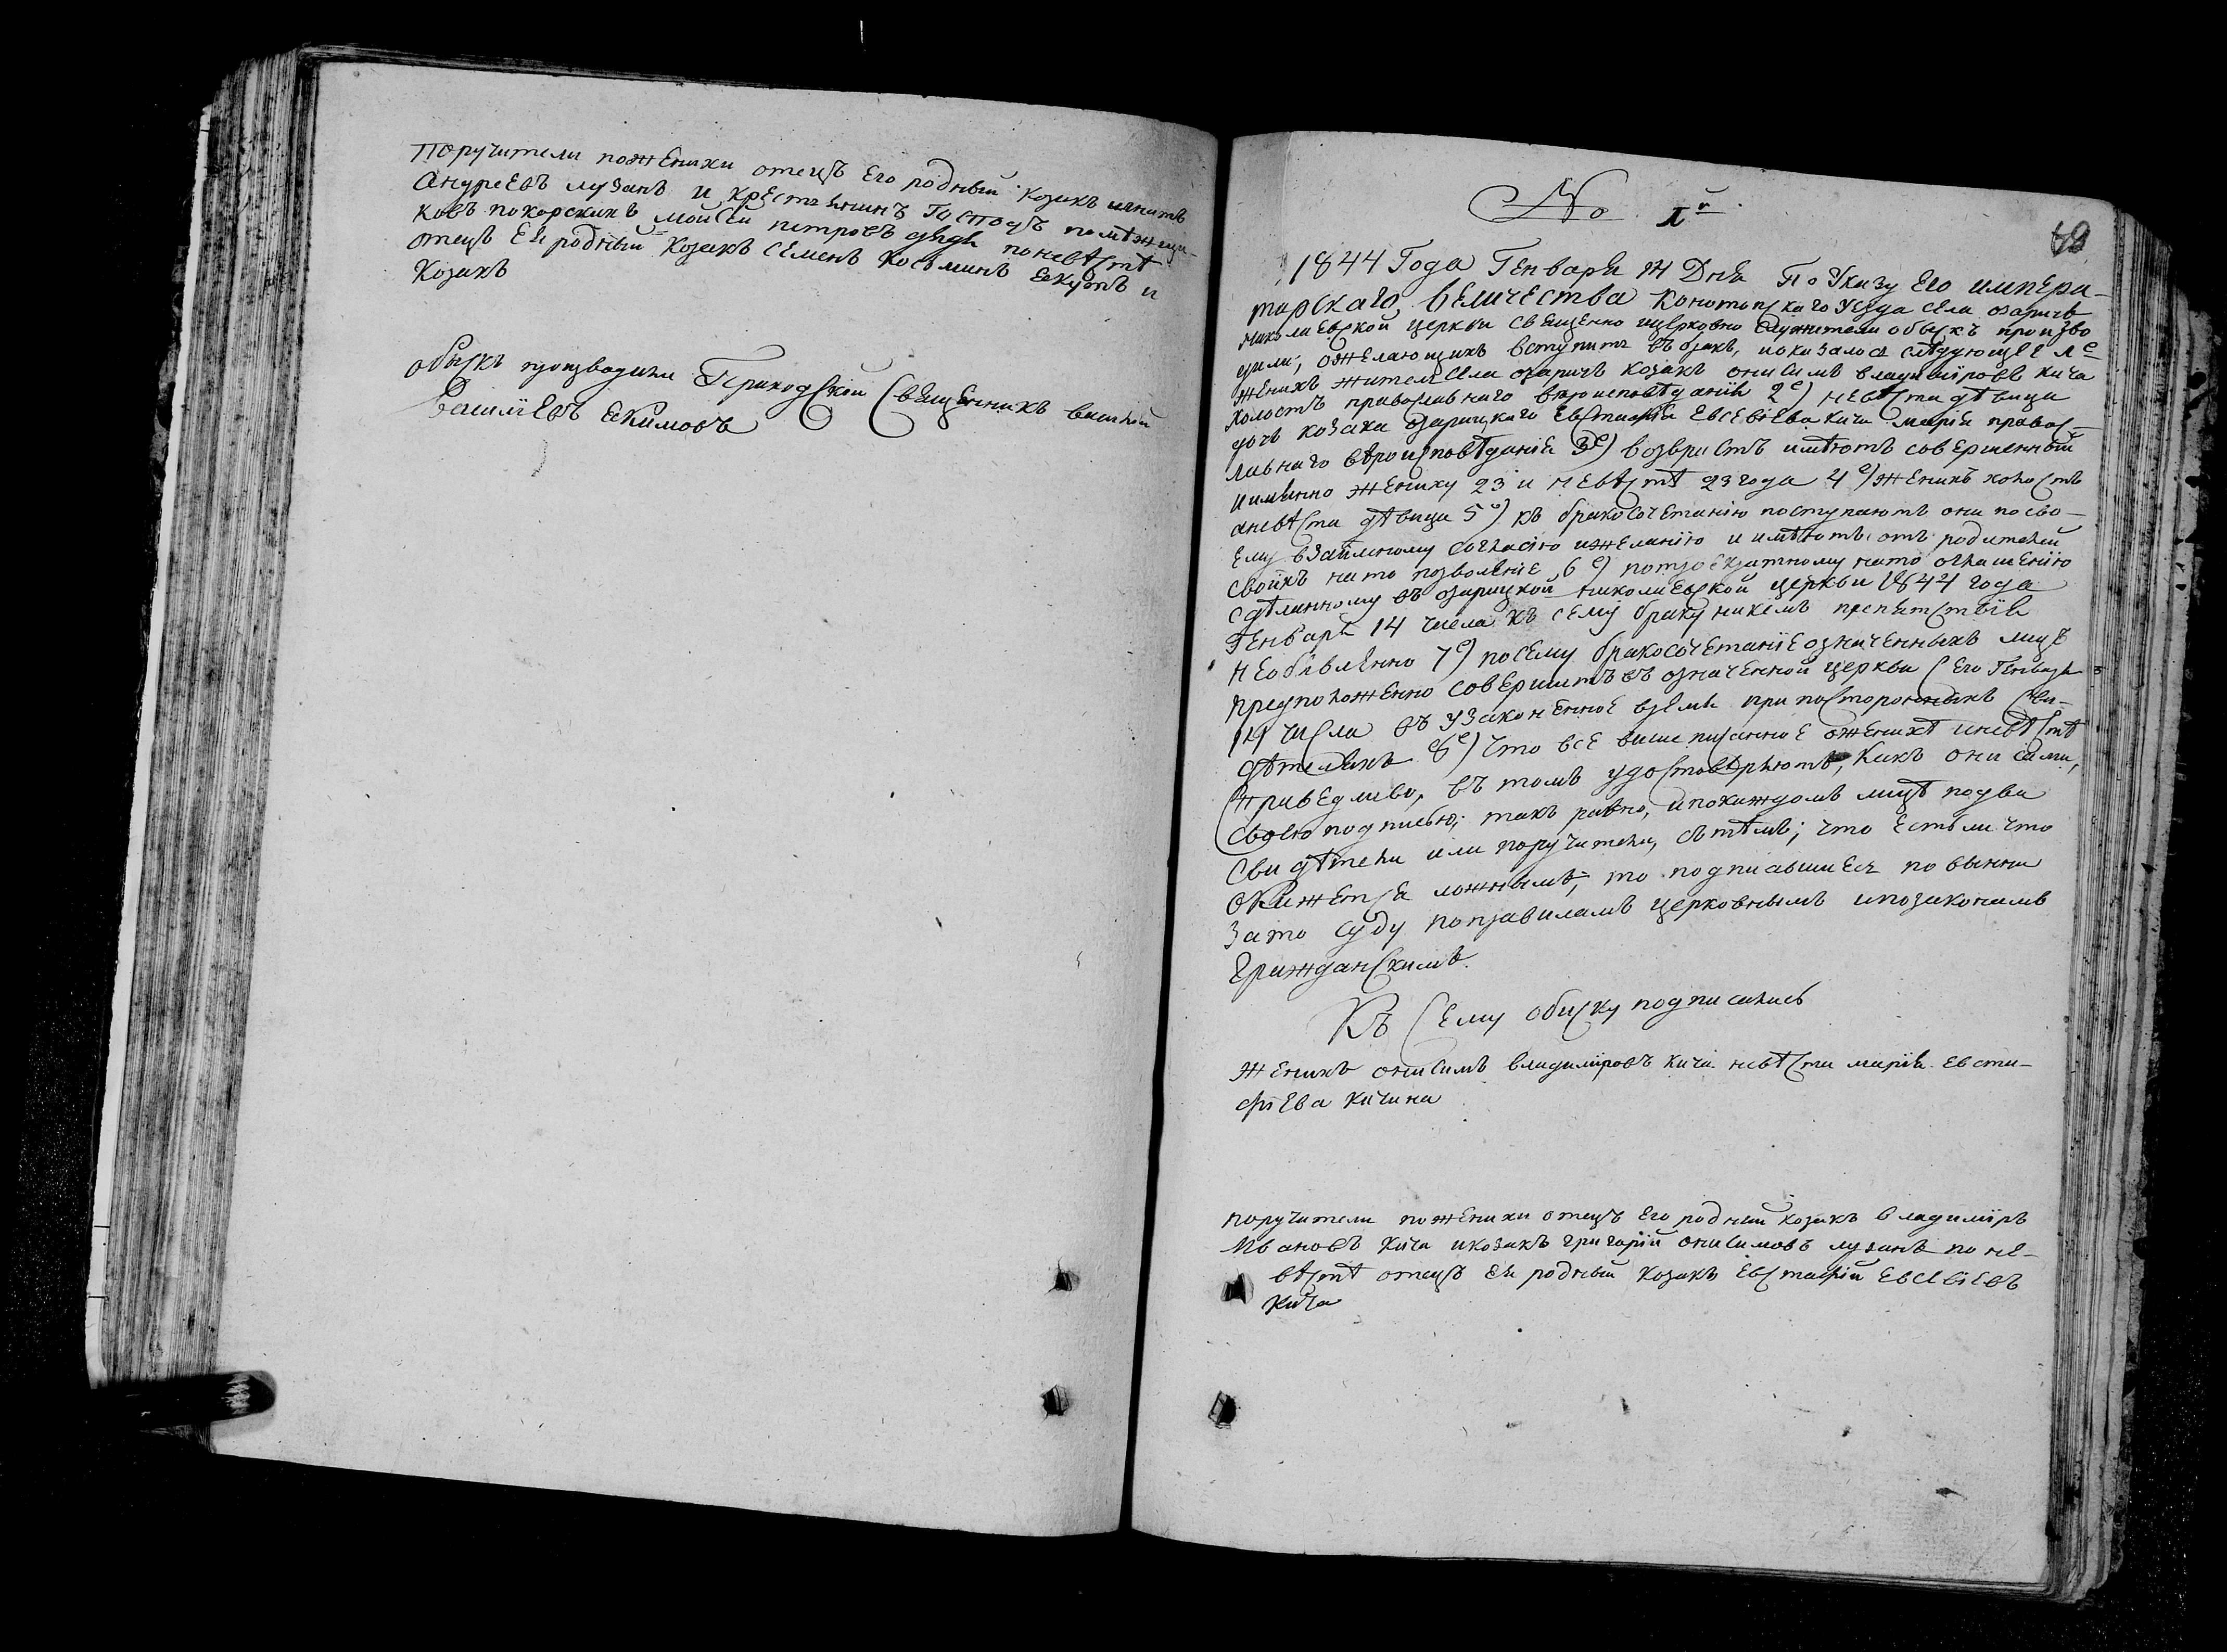 Поручители пожениху отецъ Его родный козакъ игнатъ
Андреевъ лузанъ и крестьянинъ Господъ помѣщи-
ковъ покорскихъ мойсей петровъ дядя поневѣстѣ
отецъ Ея родный козакъ Семенъ косминъ Екутъ и
козакъ
обыскъ производили Приходскій Священникъ василій
Васильевъ Екимовъ
No 1й
49
1844 Года Генваря 14 Дня По Указу Его импера-
торскаго величества конотопскаго уезда села озаричъ
николаевской церкви священно ицерковно служители обыскъ произво
дили, ожелающихъ вступить въ бракъ, иоказалось слѣдующее 1е
женихъ жител села озаричъ козакъ онисимъ владиміровъ кича
холостъ православнаго вѣроисповѣданія 2е) невѣста дѣвица
дочь козака озарицкаго Евстафія Евсевіева кичи марія правос-
лавнаго вѣроисповѣданія 3е) возврастъ имѣютъ совершенный
иимянно жениху 23 и невѣстѣ 23 года 4е) женихъ холостъ
аневѣста дѣвица 5е) къ бракосочетанію поступаютъ они посво-
ему взаймному согласію ижеланію и имѣютъ отъ родителей
своихъ нато позволеніе 6е) потроекратному нато оглашенію
сдѣланному въ озарицкой николаевской церкви 1844 года
Генваря 14 числа къ сему браку никемъ препятствія
необявленно 7е) посему бракосочетаніе означенныхъ лицъ
предположенно совершить въ означенной церкви сего Генваря
14 числа въ узаконенное время при постороннихъ сви-
дѣтеляхъ 8е) что все вишеписанное ожених­ѣ иневѣстѣ
справедливо, въ томъ удостовѣряютъ, какъ они сами,
своею подписью; такъ равно, ипокаждомъ лицѣ подва
свидѣтели или поручители, сътѣмъ; что естьли что
окажется ложнымъ, то подписавшиесь повынни
зато суду поправиламъ церковнымъ ипозаконамъ
Гражданскимъ.
Къ Сему обиску подписались
женихъ онисимъ владиміровъ кича невѣста марія Евста-
фіева кичина
поручители пожениху отецъ Его родный козакъ владиміръ
Ивановъ кича икозакъ григорій онисимовъ лузанъ по не-
вѣстѣ отецъ Ея родный козакъ Евстафій Евсевіевъ
кича